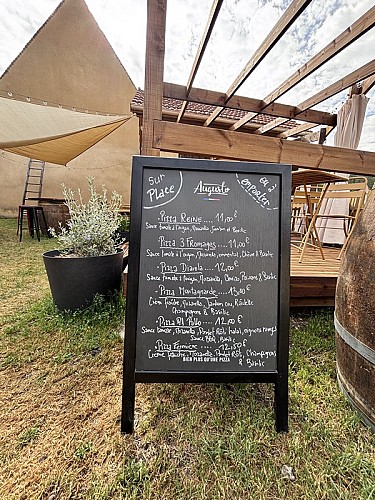 Sur Place
Augusto
ou à emporter
Pizza Reine .... 11,00€
Sauce tomate à l'origan, Mozzarella, Jambon et Basilic
Pizza 3 Fromages .... 11,00€
Sauce tomate à l'origan, Mozzarella, emmental, Chèvre & Basilic
Pizza Diavola .... 12,00€
Sauce tomate à l'origan, Mozzarella, Chorizo, Poivrons & Basilic
Pizza Montagnarde .... 13,00€
Crème fraîche, Mozzarella, Jambon cru, Raclette
Champignons & Basilic
Pizza El Pollo .... 12,00€
Sauce tomate, Mozzarella, Poulet Rôti halal, oignons rouges
Sauce BBQ, Basilic
Pizza Fermière .... 12,50€
Crème fraîche, Mozzarella, Poulet Rôti, Champignons
& Basilic
BIEN PLUS QU'UNE PIZZA